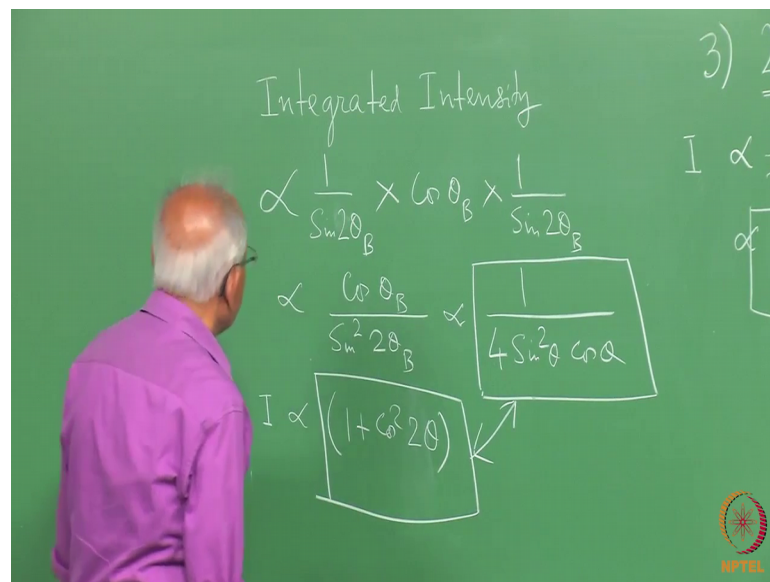 Integrated Intensity
∝ 1/Sin2θ_B × Cos θ_B × 1/Sin 2θ_B
∝ Cos θ_B/Sin² 2θ_B ∝ 1/4 Sin²θ cosθ
I ∝ (1 + Cos² 2θ)
3)
I ∝
∝
NPTEL